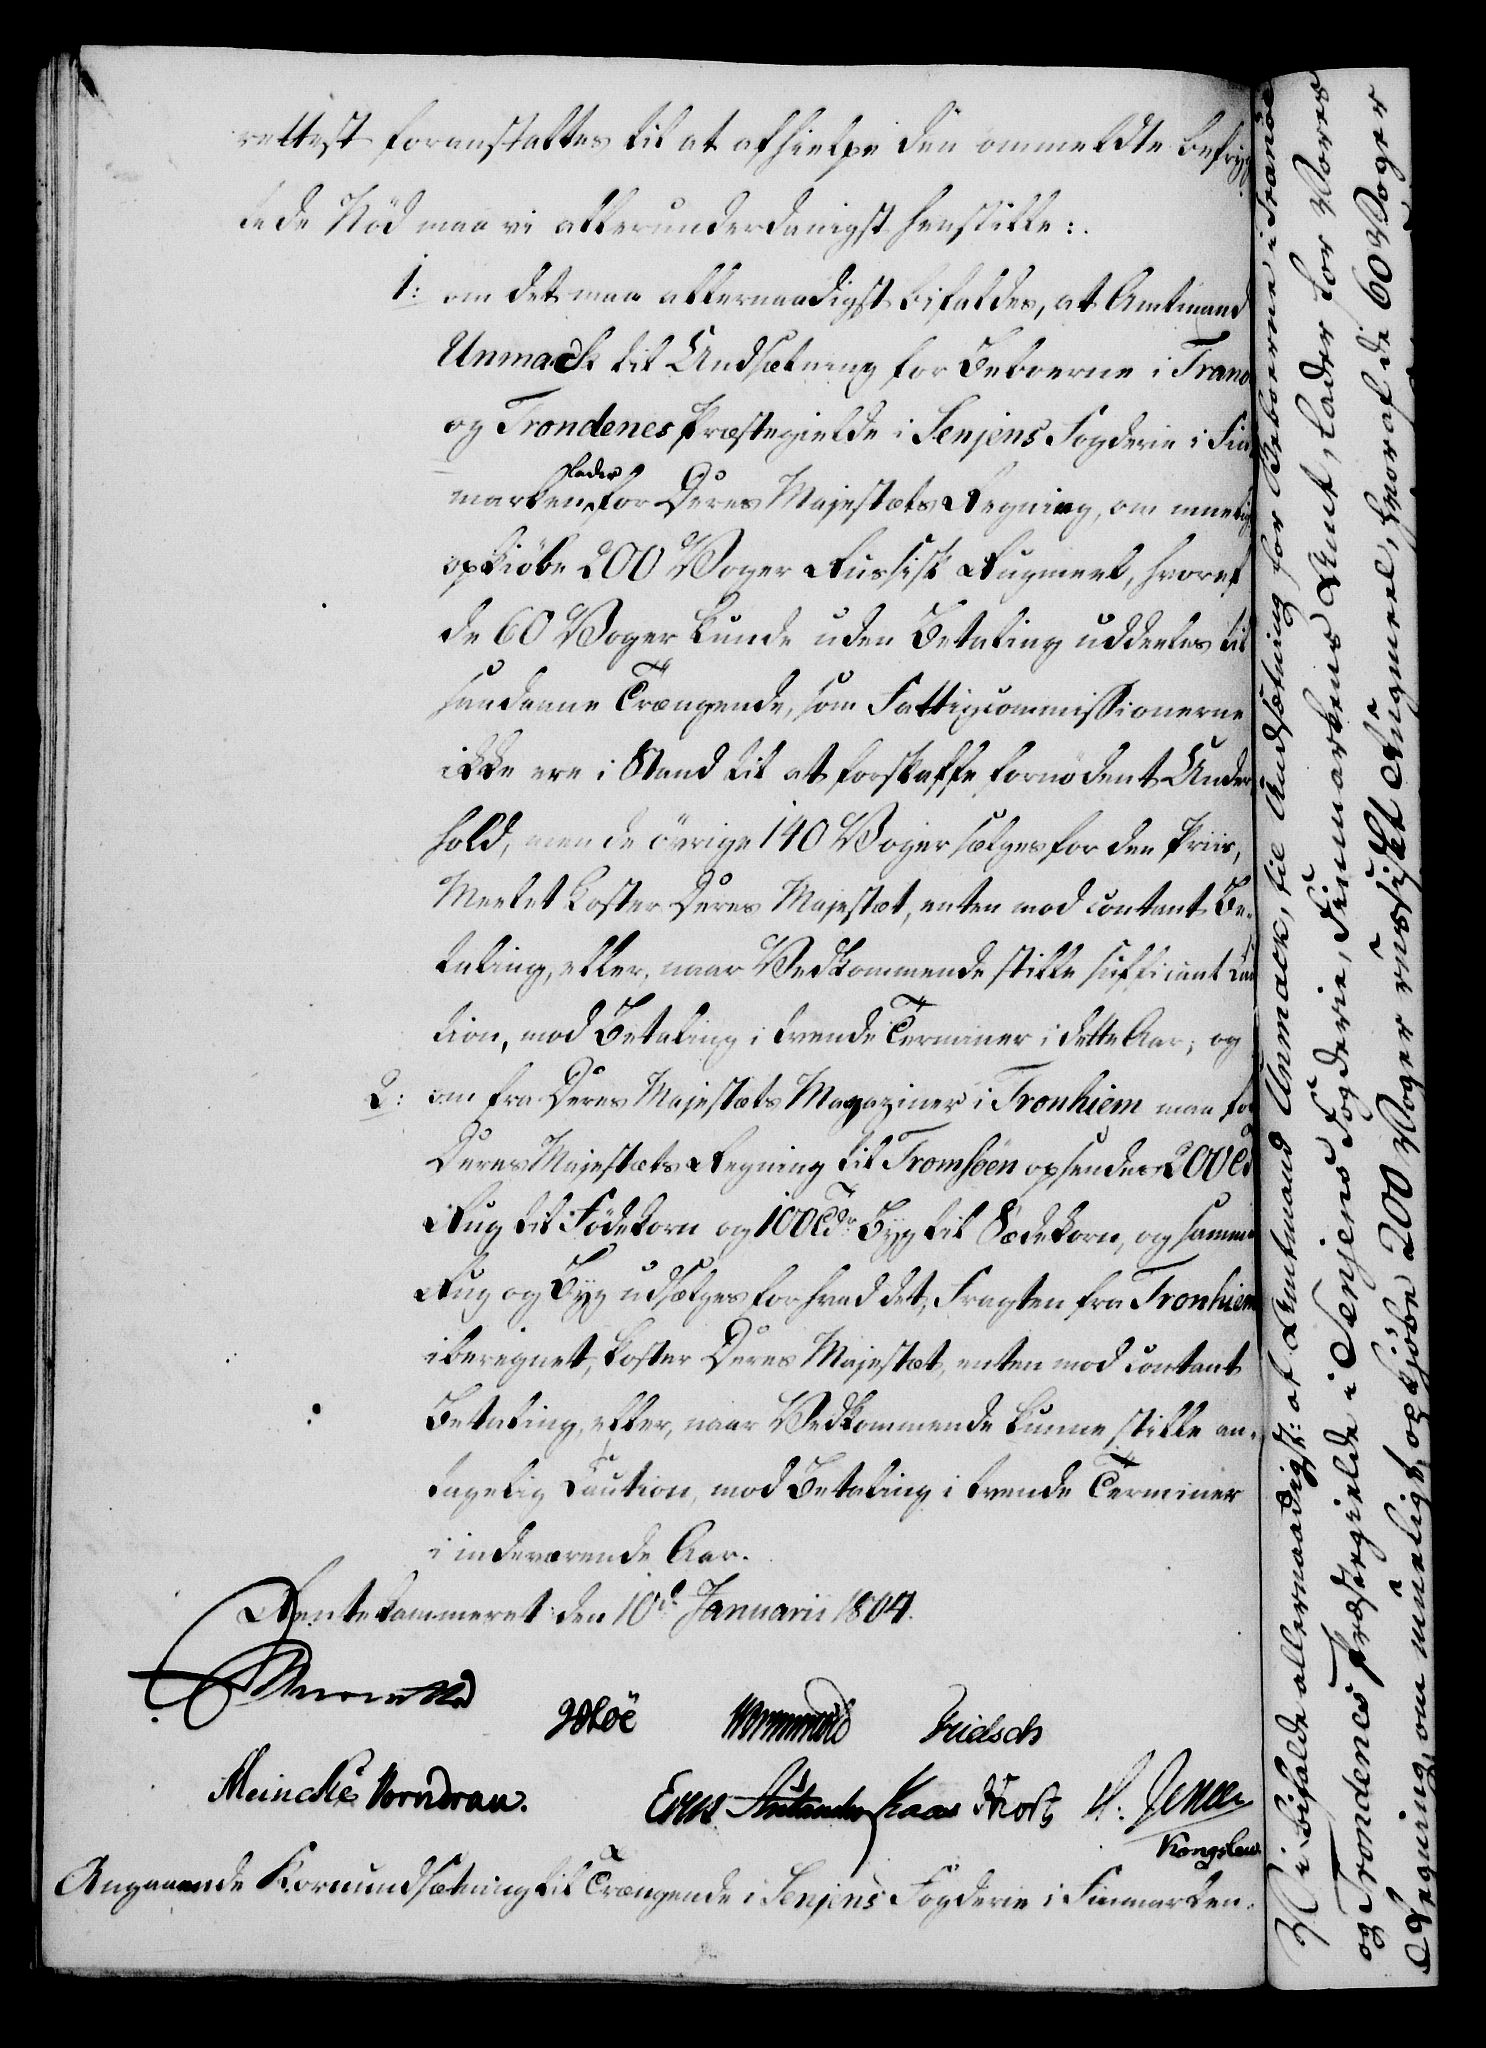 rettest foranstaltes til at afhielpe den ommeldte befryg
tede Nöd maa vi allerunderdanigst henstille:
1: om det maa allernaadigst bifaldes, at Amtmand
Unmack til Undsætning for Beboerne i Trano
og Trondenes Præstegielde i Senjens Fogderie i Fin
marken, lader for Deres Majestæts Regning, om muelig
opkiöbe 200 Voger Russisk Rugmeel, hvoraf
de 60 Voger kunde uden Betaling uddeeles til
saadanne Trængende, som Fattigcommissionerne
ikke ere i Stand til at forskaffe fornödent Under
hold, men de övrige 140 Voger sælges for den Priis,
Meelet koster Deres Majestæt, enten mod contant Be-
taling, eller, naar Vedkommende stille sufficient Cau
tion, mod Betaling i tvende Terminer i dette Aar; og
2: om fra Deres Majestæts Magaziner i Tronhiem maa for
Deres Majestæts Regning til Tromsöen opsendes 200 Td
Rug til Födekorn og 100 Tdr Byg til Sædekorn, og samme
Rug og Byg udsælges for hvad det, Fragten fra Tronhiem
iberegnet, koster Deres Majestæt, enten mod contant
Betaling, eller, naar Vedkommende kunne stille an-
tagelig Caution, mod Betaling i tvende Terminer
i indeværende Aar.
Rentekammeret den 10de Januarii 1804.
Wormskiold
Meincke Vorndran.
Kaas
Angaaende Kornundsætning til Trængende i Senjens Fogderie i Finmarken.
Vi bifalde allernaadigst: at Amtmand Unmack, til Undsætning for Beboerne i Tranöe
og Trondenes Præstegielde i Senjens Fogderie, Finmarkens Amt, lader for Vores
Regning, om mueligt, opkjöbe 200 Voger russiskt Rugmeel, hvoraf de 60 Voger